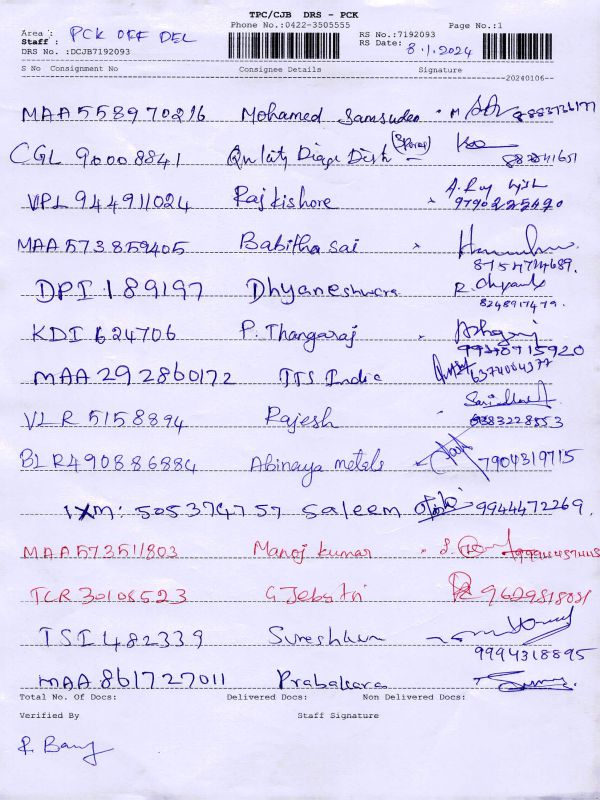 TPC/CJB DRS - PCK
Phone No.:0422-3505555 Page No.:1
Area : PCK OFF DEL RS No.:7192093
Staff : RS Date: 8.1.2024
DRS No. :DCJB7192093
S No Consignment No Consignee Details Signature
20240106
MAA558970216 Mohamed Samsudeo
CGL 90008841 Quality Diage Dish (Spores)
VPL 944911024 Raj kishore
9790225420
MAA573859405 Babitha sai
8754714689.
DPI 189197 Dhyaneshwara
8248917479.
KDI 624706 P. Thangaraj
MAA 292860172 TTS India 6374004377
VLR 5158894 Rajesh
BLR490886884 Abinaya metals 7904319715
IXM: 505374757 Saleem 9944472269.
MAA573511803 Manoj kumar
TCR 30108523 G Jebstri 9629818031
TSI 482339 Sureshkum
9994318895
MAA 861727011 Prabakara
Total No. Of Docs: Delivered Docs: Non Delivered Docs:
Verified By Staff Signature